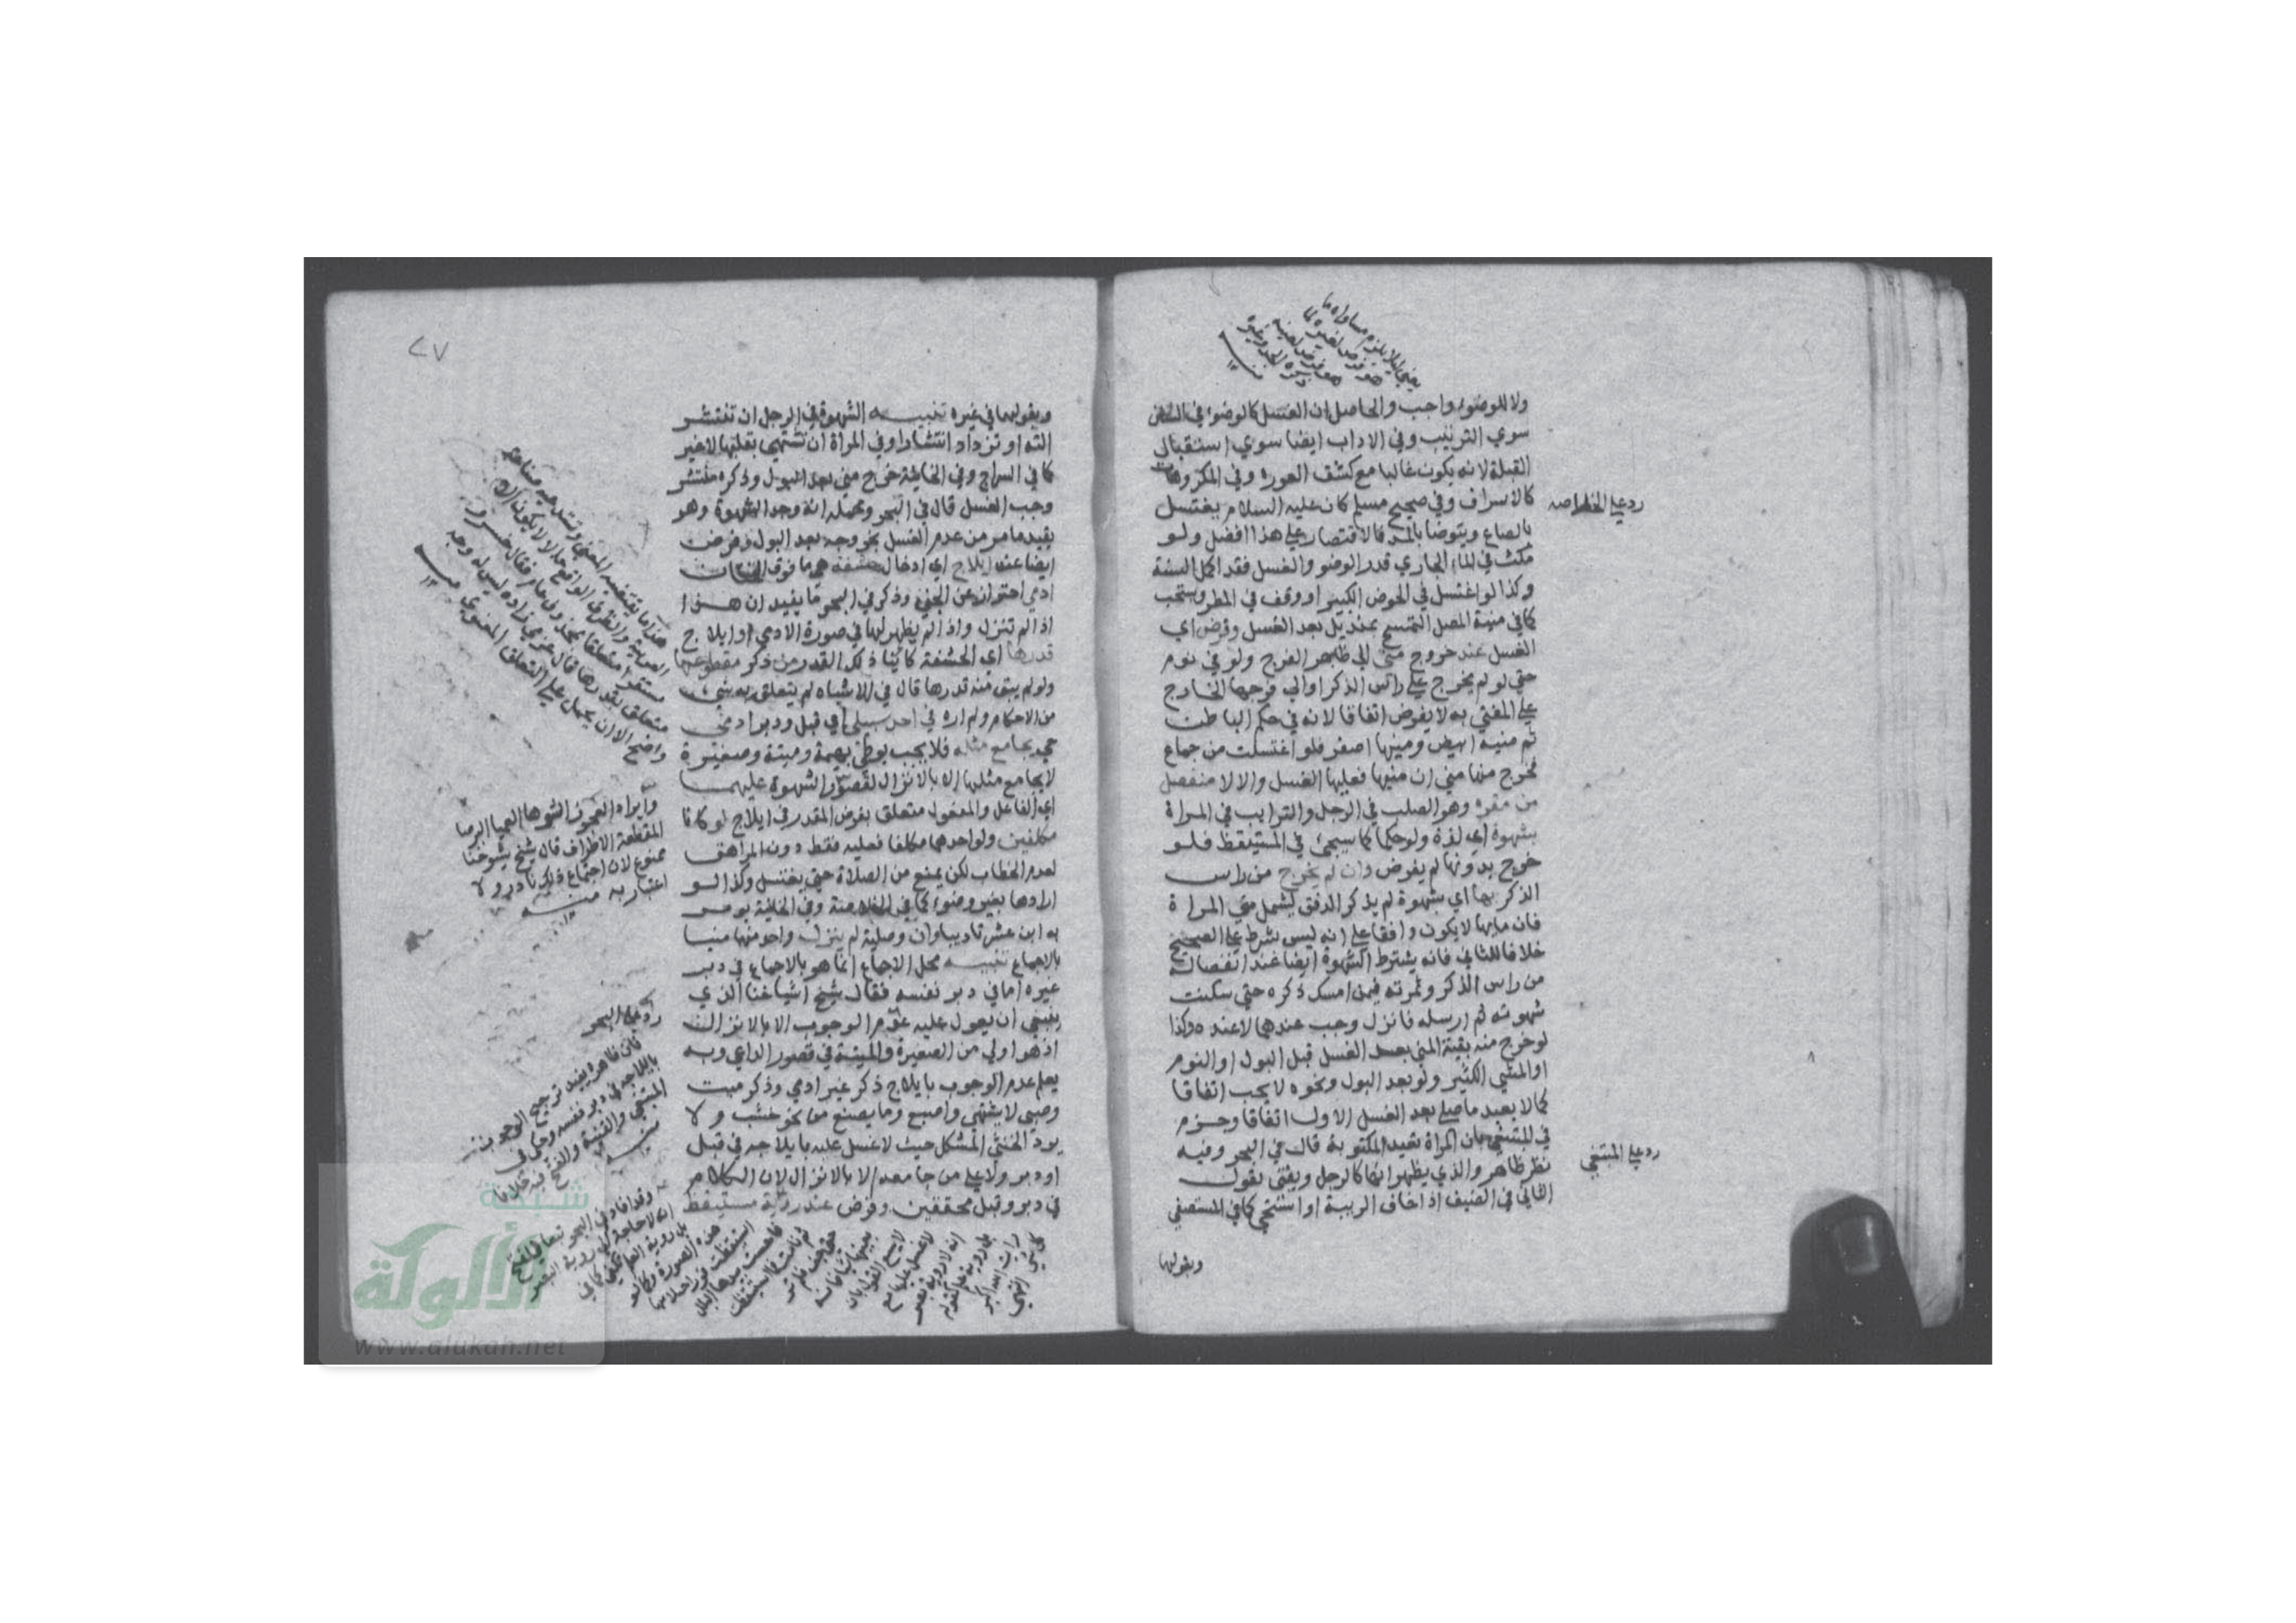 ولا للوضوء واجب والحاصل ان الغسل كالوضوء في السنن
سوي الترتيب وفي الاداب ايضا سوي استقبال
القبلة لانه يكون غالبا مع كشف العورة وفي المكروهات
كالاسراف وفي صحيح مسلم كان عليه السلام يغتسل
بالصاع ويتوضا بالمد فالاقتصار علي هذا افضل ولو
مكث في الماء الجاري قدر الوضو والغسل فقد اكمل السنة
وكذا لو اغتسل في الحوض الكبير او وقف في المطر ويستحب
كما في منية المصل التمسح بمنديل بعد الغسل وفرض اي
الغسل عند خروج مني الي ظاهر الفرج ولو في نوم
حتي لو لم يخرج علي راس الذكر او الي فرجها الخارج
علي المفتي به لا يفرض اتفاقا لانه في حكم الباطن
ثم منيه ابيض ومنيها اصفر فلو اغتسلت من جماع
فخرج منها مني ان منيها فعليها الغسل والا لا منفصل
من مقره وهو الصلب في الرجل والترايب في المراة
بشهوة اي لذة ولو حكما كما سيجئ في المستيقظ فلو
خرج بدونها لم يفرض وان لم يخرج من راس
الذكر بها اي بشهوة لم يذكر الدفق ليشمل مني المراة
فان ماءها لا يكون دافقا علي انه ليس بشرط علي الصحيح
خلافا للثاني فانه يشترط الشهوة ايضا عند انفصاله
من راس الذكر وثمرته فيمن امسك ذكره حتي سكنت
شهوته ثم ارسله فانزل وجب عندهما لا عنده وكذا
لو خرج منه بقية المني بعد الغسل قبل البول او النوم
او المشي الكثير ولو بعد البول ونحوه لا يجب اتفاقا
كما لا يعيد ما صلي بعد الغسل الاول اتفاقا وجزم
في المبتغي بان المراة تعيد المكتوبة قال في البحر وفيه
نظر ظاهر والذي يظهر انها كالرجل ويفتي بقول
الثاني في الضيف اذا خاف الريبة او استحي كما في المستصفي
وبقولهما
رد علي الخلاصه
رد علي المبتغي
٢٧
وبقولهما في غيره تنبيه الشهوة في الرجل ان تنتشر
الته او تزداد انتشارا وفي المراة ان تشتهي بقلبها لا غير
كما في السراج وفي الخانية خرج مني بعد البول وذكره منتشر
وجب الغسل قال في البحر ومحمله انه وجد الشهوة وهو
يقيد ما مر من عدم الغسل بخروجه بعد البول وفرض
ايضا عند ايلاج اي ادخال حشفة هي ما فوق الختان
ادمي احترازا عن الجني وذكر في البحر ما يفيد ان هذا
اذا لم تنزل واذا لم يظهر لها في صورة الادمي او ايلاج
قدرها اي الحشفة كائنا ذلك القدر من ذكر مقطوعها
ولو لم يبق منه قدرها قال في الاشباه لم يتعلق به شيء
من الاحكام ولم اره في احد سبيلي اي قبل ودبر ادمي
حي يجامع مثله فلا يجب بوطئ بهيمة وميتة وصغيرة
لا يجامع مثلها الا بالانزال لقصور الشهوة عليهما
اي الفاعل والمفعول متعلق بفرض المقدر في ايلاج لو كانا
مكلفين ولو احدهما مكلفا فعليه فقط دون المراهق
لعدم الخطاب لكن يمنع من الصلاة حتي يغتسل وكذا لو
ارادها بغير وضوء كما في الخلاصة وفي الخانية يومر
به ابن عشر تاديبا وان وصلية لم ينزل واحد منهما منيا
بالاجماع تنبيه محل الاجماع انما هو بالاجماع في دبر
غيره اما في دبر نفسه فقال شيخ اشياخنا الذي
ينبغي ان يعول عليه عدم الوجوب الا بالانزال
اذ هو اولي من الصغيرة والميتة في قصور الداعي وبه
يعلم عدم الوجوب بايلاج ذكر غير ادمي وذكر ميت
وصبي لا يشتهي واصبع وما يصنع من نحو خشب ولا
يرد الخنثي المشكل حيث لا غسل عليه بايلاجه في قبل
او دبر ولا علي من جامعه الا بالانزال لان الكلام
في دبر وقبل محققين وفرض عند رؤية مستيقظ
مستقرا متعلقا بمحذوف عام فقال خسرو
متعلق بقدرها قال عزمي زاده ليس له وجه
واضح الا ان يحمل علي التعلق المعنوي منه
المقطعة الاطراف قال شيخ شيوخنا
ممنوع لان اجتماع ذلك نادر ولا
اعتبار به منه
رد علي البحر
فان ظاهره يفيد ترجيح الوجوب
بايلاجه في دبر نفسه
شبكة
الألوكة
www.alukah.net